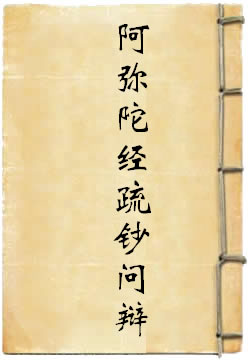 阿弥陀经疏钞问辩